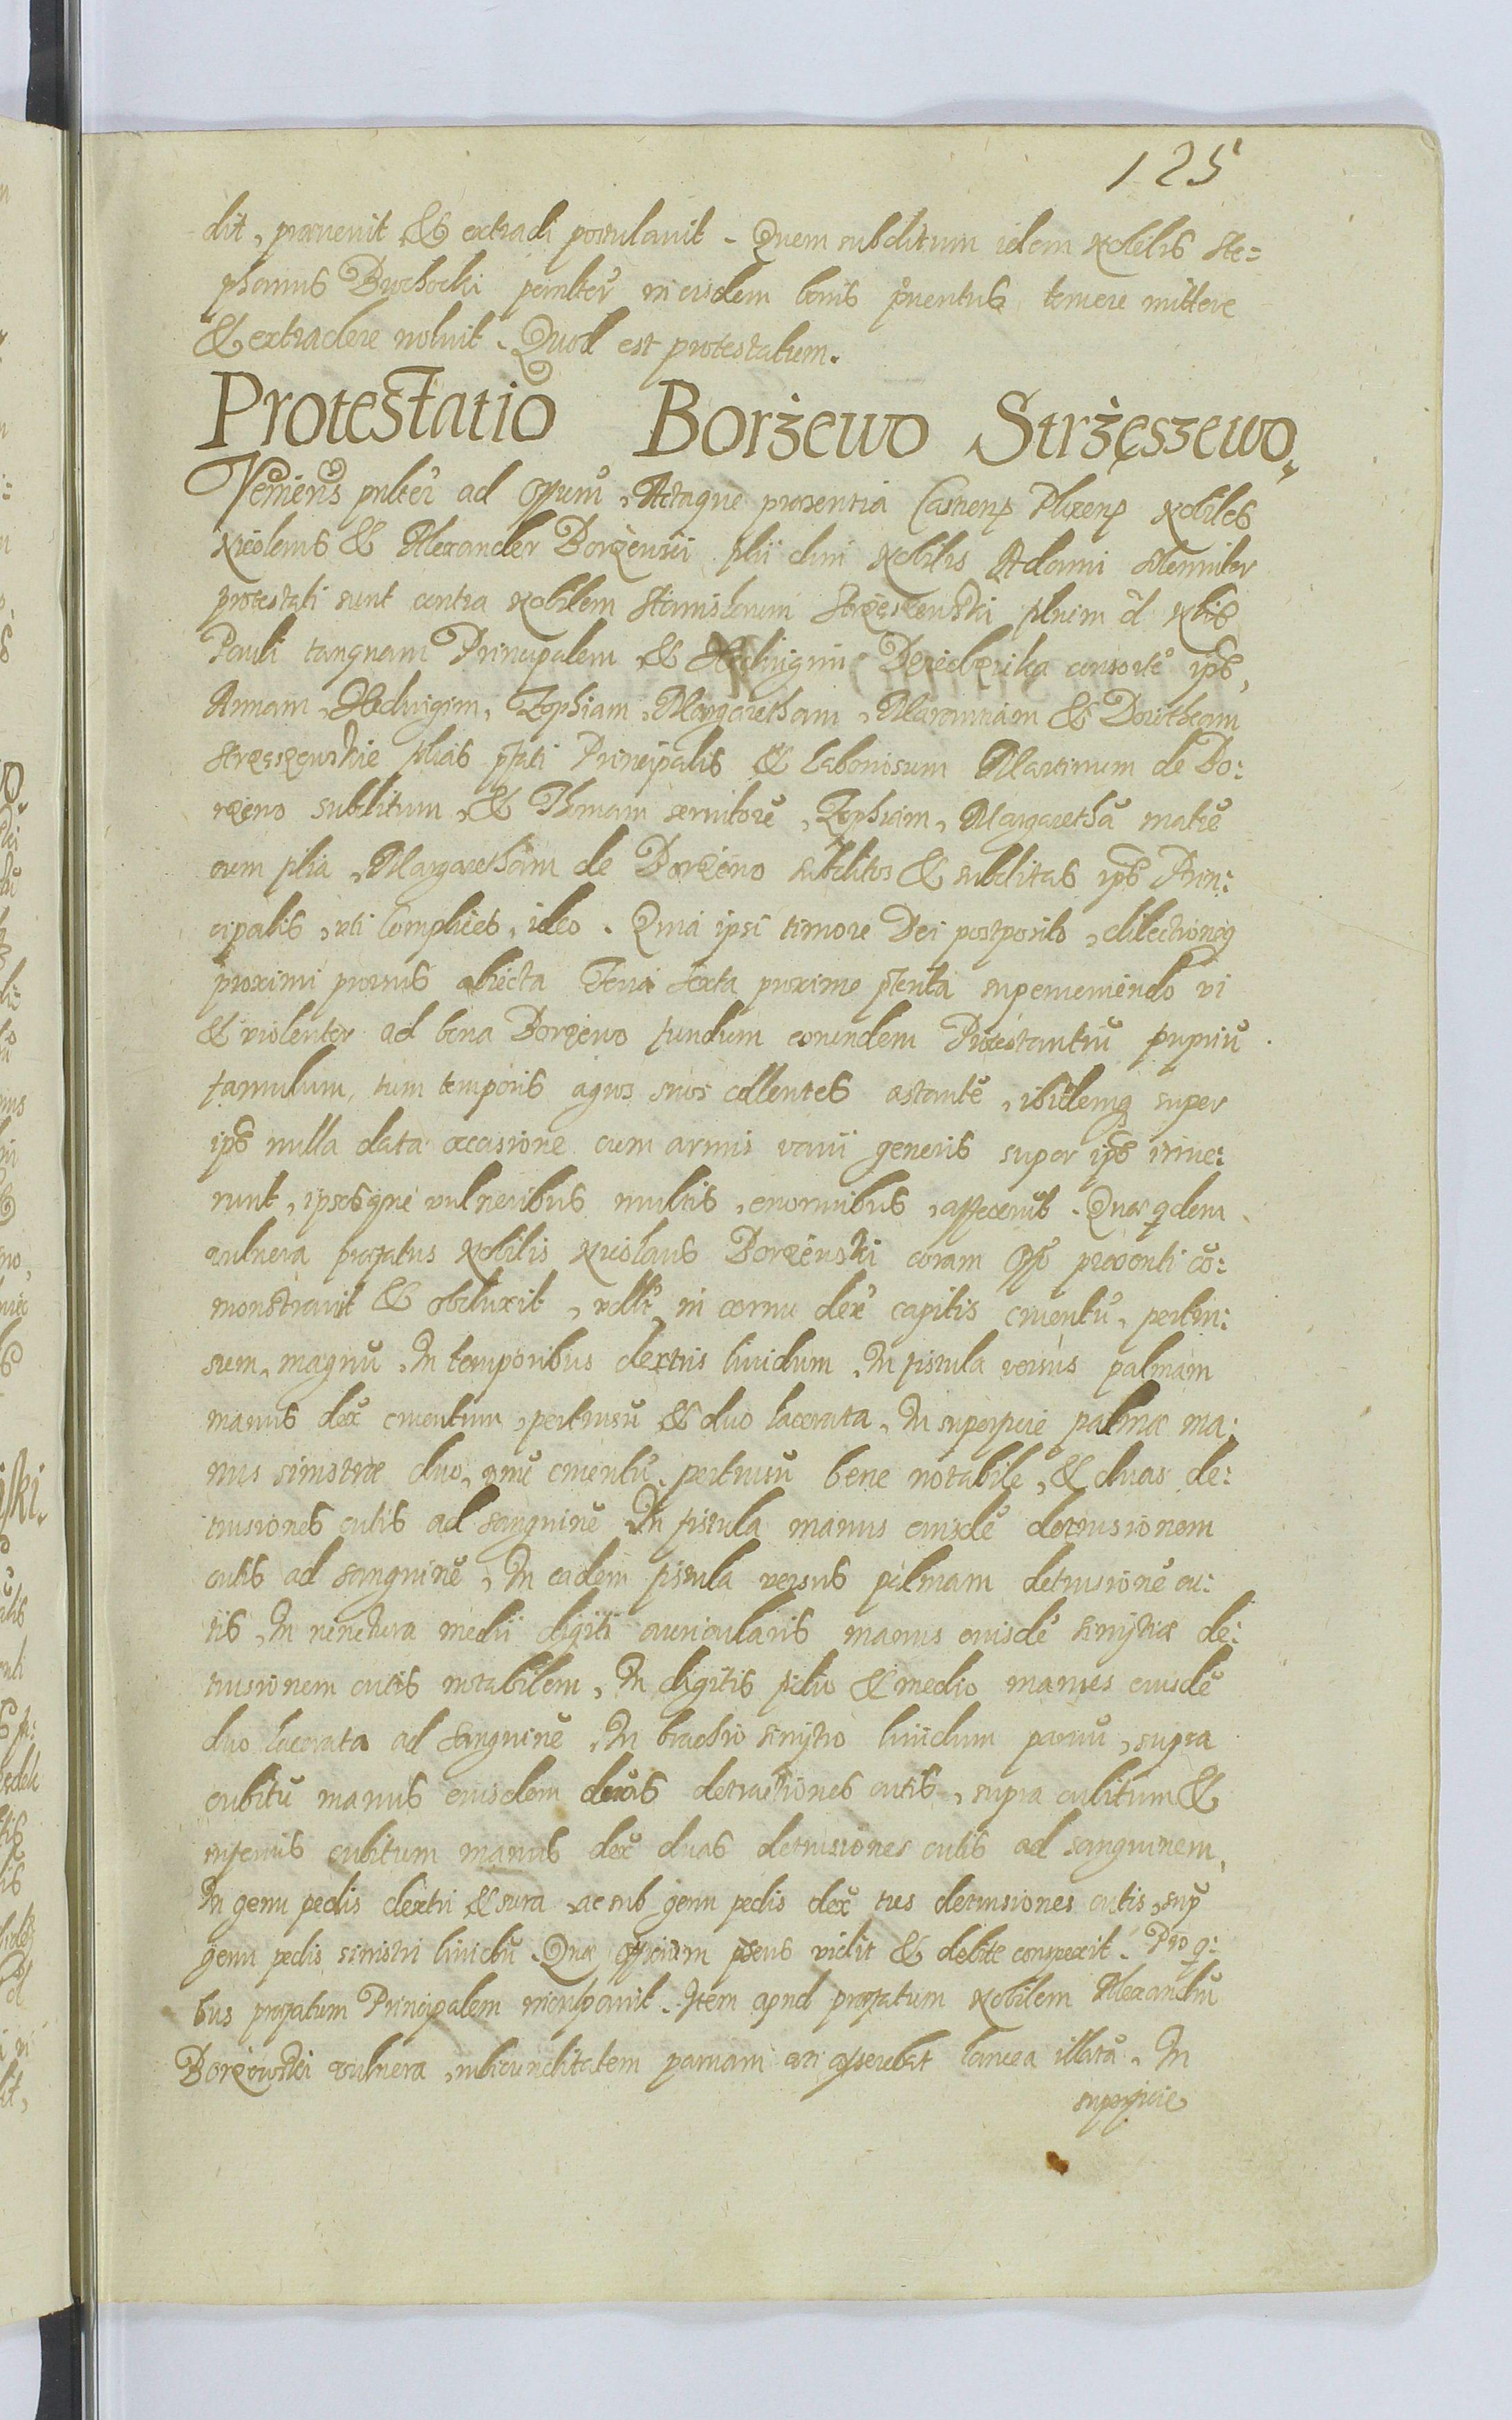 125
dit, praevenit & extradi postulavit. Quem subditum idem Nobilis Ste=
phanus Buchocki penitter in eisdem bonis proventus temere mittere
& extradere noluit. Quod est protestatum.
Protestatio Borżewo Strżeszewo.
Veniens pnlter ad Offum, Actaque praesentia Castren Plocen Nobiles
Nicolaus & Alexander Borzewsii filii olim Nobilis Adami solenniter
protestati sunt contra Nobilem Stanislaum Strzeszewski filium o Nblis
Pauli tanquam Principalem & Hedvigim consorte ips,
Annam, Hedvigim, Zophiam, Margaretham, Mariannam & Dorotheam
Strzeszewskie filias pfati Principalis & laboriosum Martinum de Bo:
rzewo subditum, & Thomam servitore, Zophiam, Margaretha matre
cum filia, Margaretham de Borzewo subditos & subditas ips Prin:
cipalis, uti Complices, ideo. Quia ipsi timore Dei postposito, dilectioneq
proximi prorsus abiecta Feria Sexta proxime pterita superveniendo vi
& violenter ad bona Borzewo fundum eorundem Protestantiu propriu
famulum, tum temporis agros suos collentes astante, ibidemq super
ips nulla data occasione cum armis varii generis super ips irrue:
runt, ipsosque vulneribus multis, enormibus, affecerut. Quae qdem
vulnera praefatus Nobilis Nicolaus Borzewski coram Offo praesenti co:
monstravit & obduxit, vdlt, in cornu dex capitis cruentu, pertu:
sum, magnu. In temporibus dextris lividum. In fistula versus palmam
manus dex cruentum, pertusu & duo lacerata. In superficie palmae ma:
nus sinistrae duo, unu cruentu pertusu bene notabile, & duas de:
trusiones cutis ad sanguine. In fistula manus eiusde detrusionem
cutis ad sanguine, In eadem fistula versus palmam detrusione cu:
tis, In iunctura medii digiti auricularis manus eiusde sinistrae de:
trusionem cutis notabilem, In digitis fidio & medio manus eiusde
duo lacerata ad sanguine. In brachio sinistro lividum parvu, supra
cubitu manus eiusdem duas detrusiones cutis, supra cubitum &
inferius cubitum manus dex duas detrusiones cutis ad sanguinem,
In genu pedis dextri & sura ac sub genu pedis dex tres detrusiones cutis, sup
genu pedis sinistri lividu. Quae officium psens vidit & debite conspexit. Pro q:
bus praefatum Principalem inculpavit. Item apud praefatum Nobilem Alexandru
Borzewski vulnera, rubicunditatem parvam uti asserebat lancea illata. In
superficie